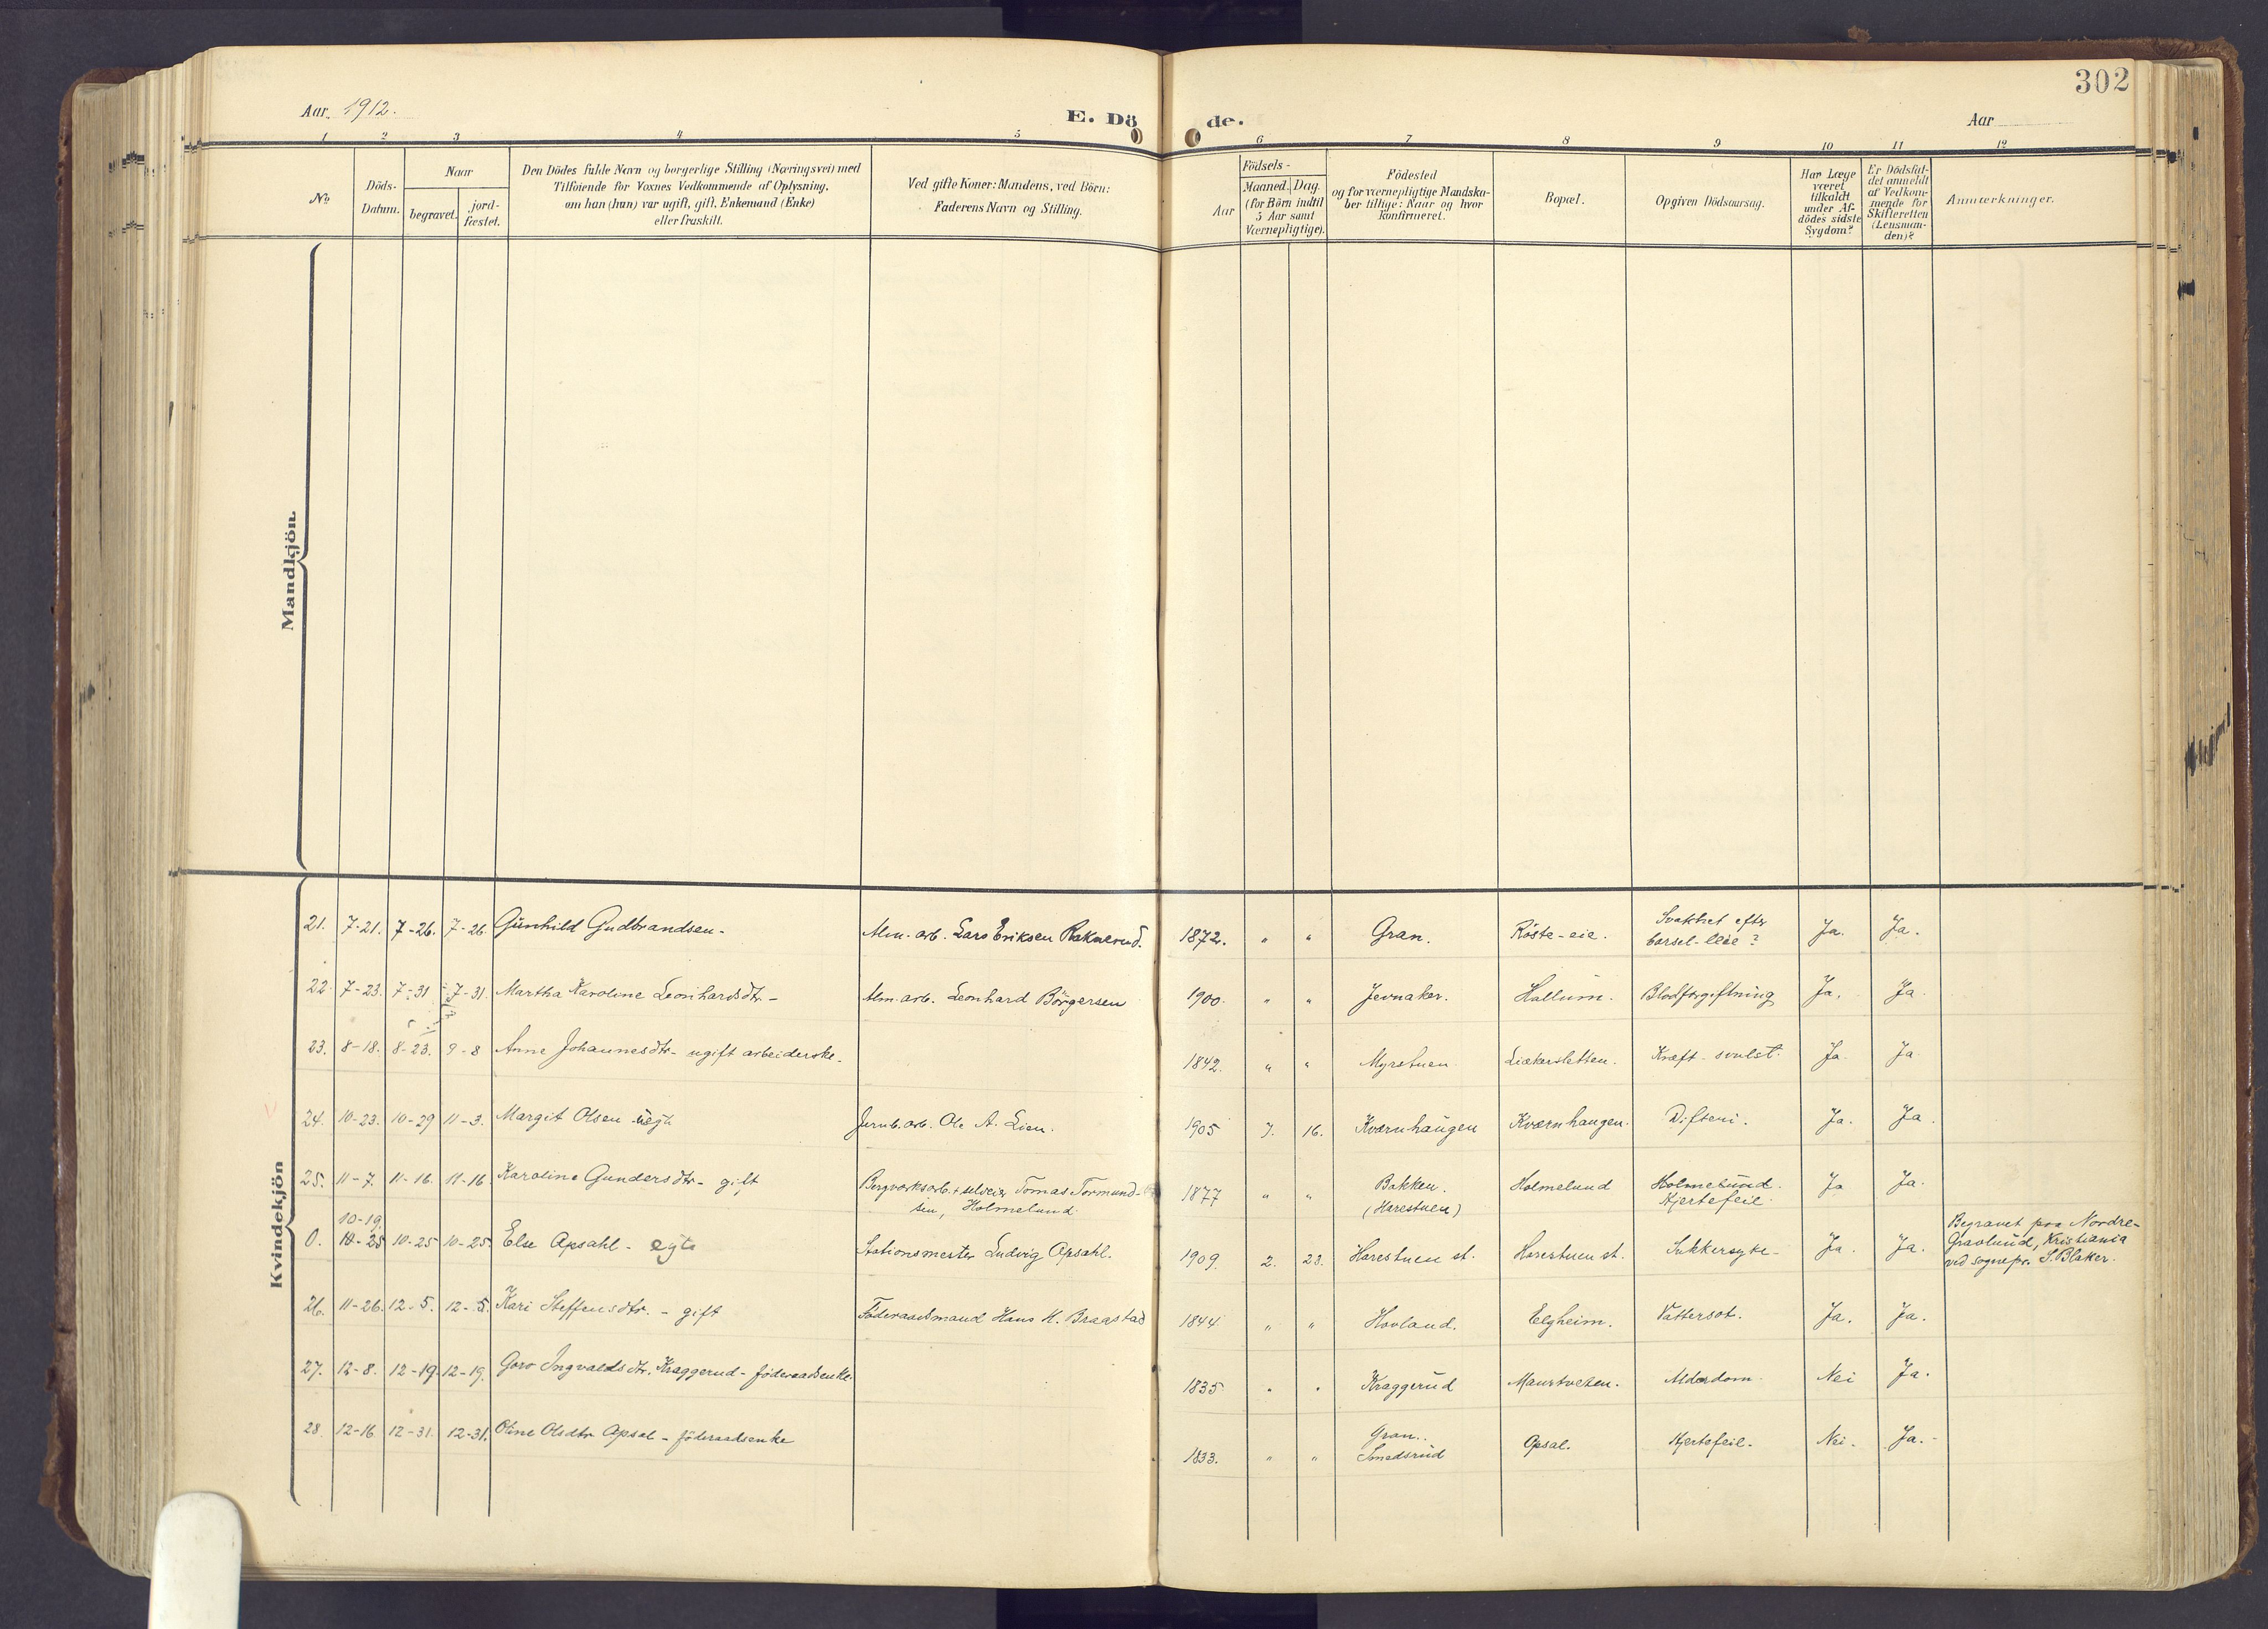 302
Aar 1912.
E. Döde.
Aar
1 2 3 4 5 6 7 8 9 10 11 12
No
Döds-
Datum.
Naar
begravet.
jord-
fæstet.
Den Dödes fulde Navn og borgerlige Stilling (Næringsvei) med
Tilföiende for Voxnes Vedkommende af Oplysning,
om han (hun) var ugift, gift, Enkemand (Enke)
eller fraskilt.
Ved gifte Koner: Mandens, ved Börn:
Faderens Navn og Stilling.
Födsels-
Aar
Maaned. Dag.
(for Börn indtil
5 Aar samt
Værnepligtige).
Födested
og for værnepligtige Mandska-
ber tillige: Naar og hvor
konfirmeret.
Bopæl.
Opgiven Dödsaarsag.
Har Læge
været
tilkaldt
under Af-
dödes sidste
Sygdom?
Er Dödsfal-
det anmeldt
af Vedkom-
mende for
Skifteretten
(Lensman-
den)?
Anmærkninger.
Mandkjön.
Kvindekjön
21. 7-21. 7-26. 7-26. Gunhild Gudbrandsen- Alm. arb. Lars Eriksen Raknerud. 1872. " " Gran. Röste-eie. Svakhet efter Ja. Ja.
barsel-leie?
22. 7-23. 7-31 7-31. Martha Karoline Leonhardsdtr- Alm. arb. Leonhard Börgersen 1900. " " Jevnaker. Hallum. Blodforgiftning Ja. Ja.
23. 8-18. 8-23. 9-8 Anne Johannesdtr- ugift arbeiderske. 1842. " " Myrstuen. Liækersletten. Kræft-svulst. Ja. Ja.
24. 10-23. 10-29 11-3. Margit Olsen Jernb. arb. Ole A. Lien. 1905 7. 16. Kværnhaugen Kværnhaugen. Difteri. Ja. Ja.
25. 11-7. 11-16. 11-16 Karoline Gundersdtr- gift Bergværksarb. + selveier Tomas Tormund- 1877 " " Bakken. Holmelund Holmelund. Ja Ja.
sen, Holmelund. (Harestuen) Hjertefeil.
10-19.
0. 10-25 10-25 10-25. Else Apsahl- egte Stationsmester Ludvig Apsahl. 1909. 2. 23. Harestuen st. Harestuen st. Sukkersyke- Ja. Ja. Begravet paa Nordre-
Gravlund, Kristiania
ved sognepr. S. Blaker.
26. 11-26. 12-5. 12-5. Kari Steffensdtr. - gift Föderaadsmand Hans K. Braastad 1844 " " Hovland. Elgheim. Vattersot. Ja. Ja.
27. 12-8. 12-19. 12-19. Goro Ingvaldsdtr. Kraggerud- föderaadsenke. 1835 " " Kraggerud Maurtveten. Alderdom. Nei Ja.
28. 12-16 12-31. 12-31. Oline Olsdtr Apsal- föderaadsenke 1833. " " Gran. Apsal. Hjertefeil. Nei. Ja.
Smedsrud